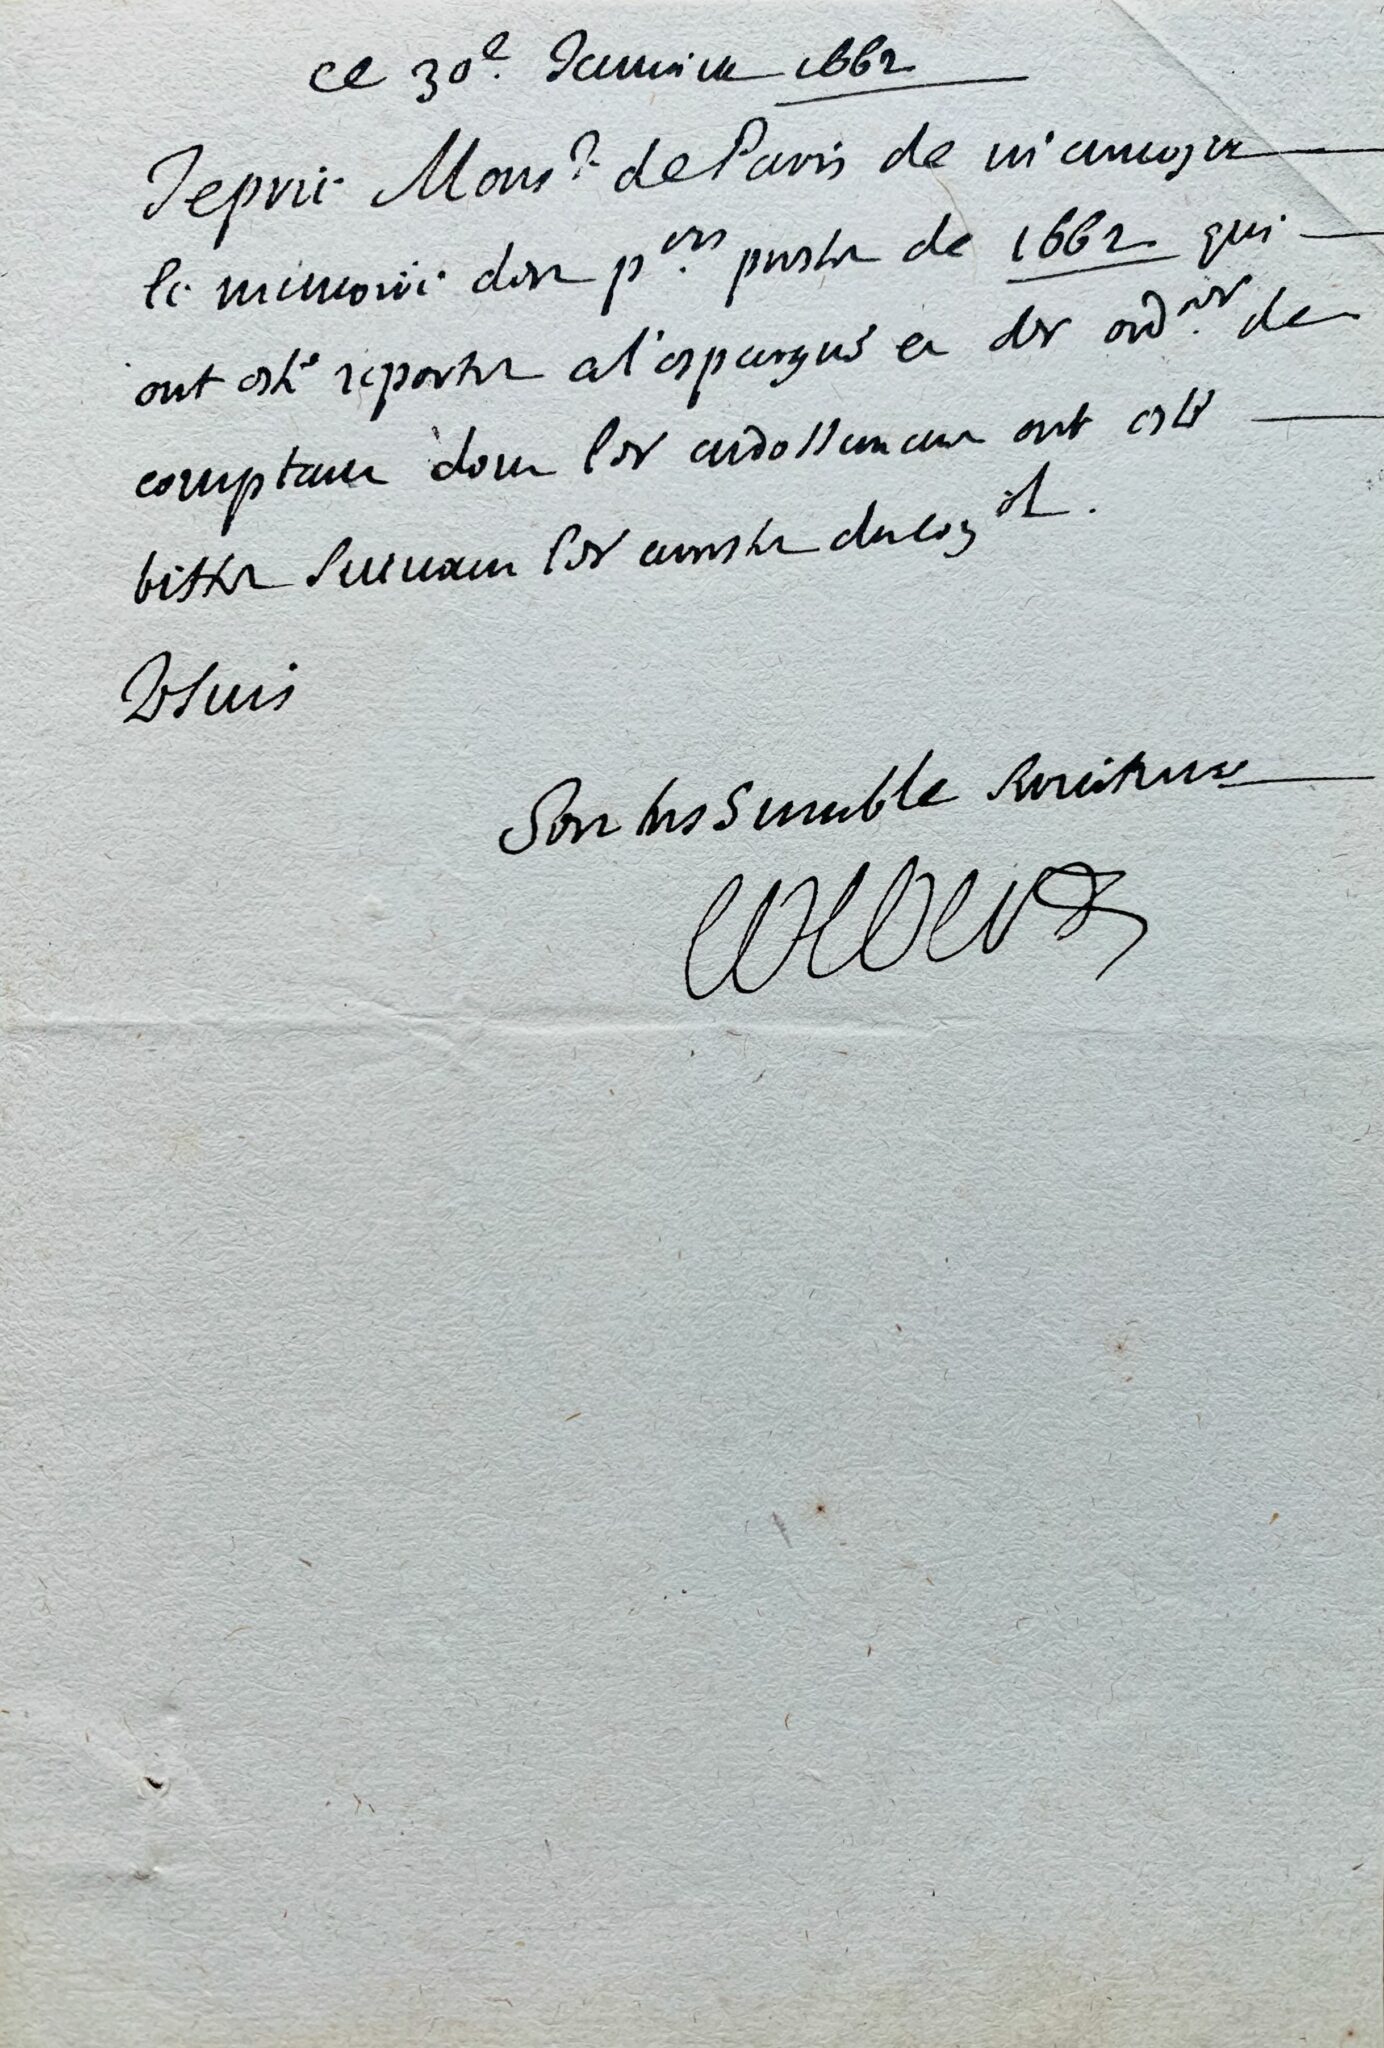 ce 30e. Januier 1662
Je prie Monsr. de Paris de m'enuoyer
le memoire des pers. prestez de 1662 qui
ont esté reportez a l'espargne et des ordres. de
comptant dont les endossemens ont esté
biffez suiuant les arrestez du coner.
Je suis
Son tres humble seruiteur
Colbert